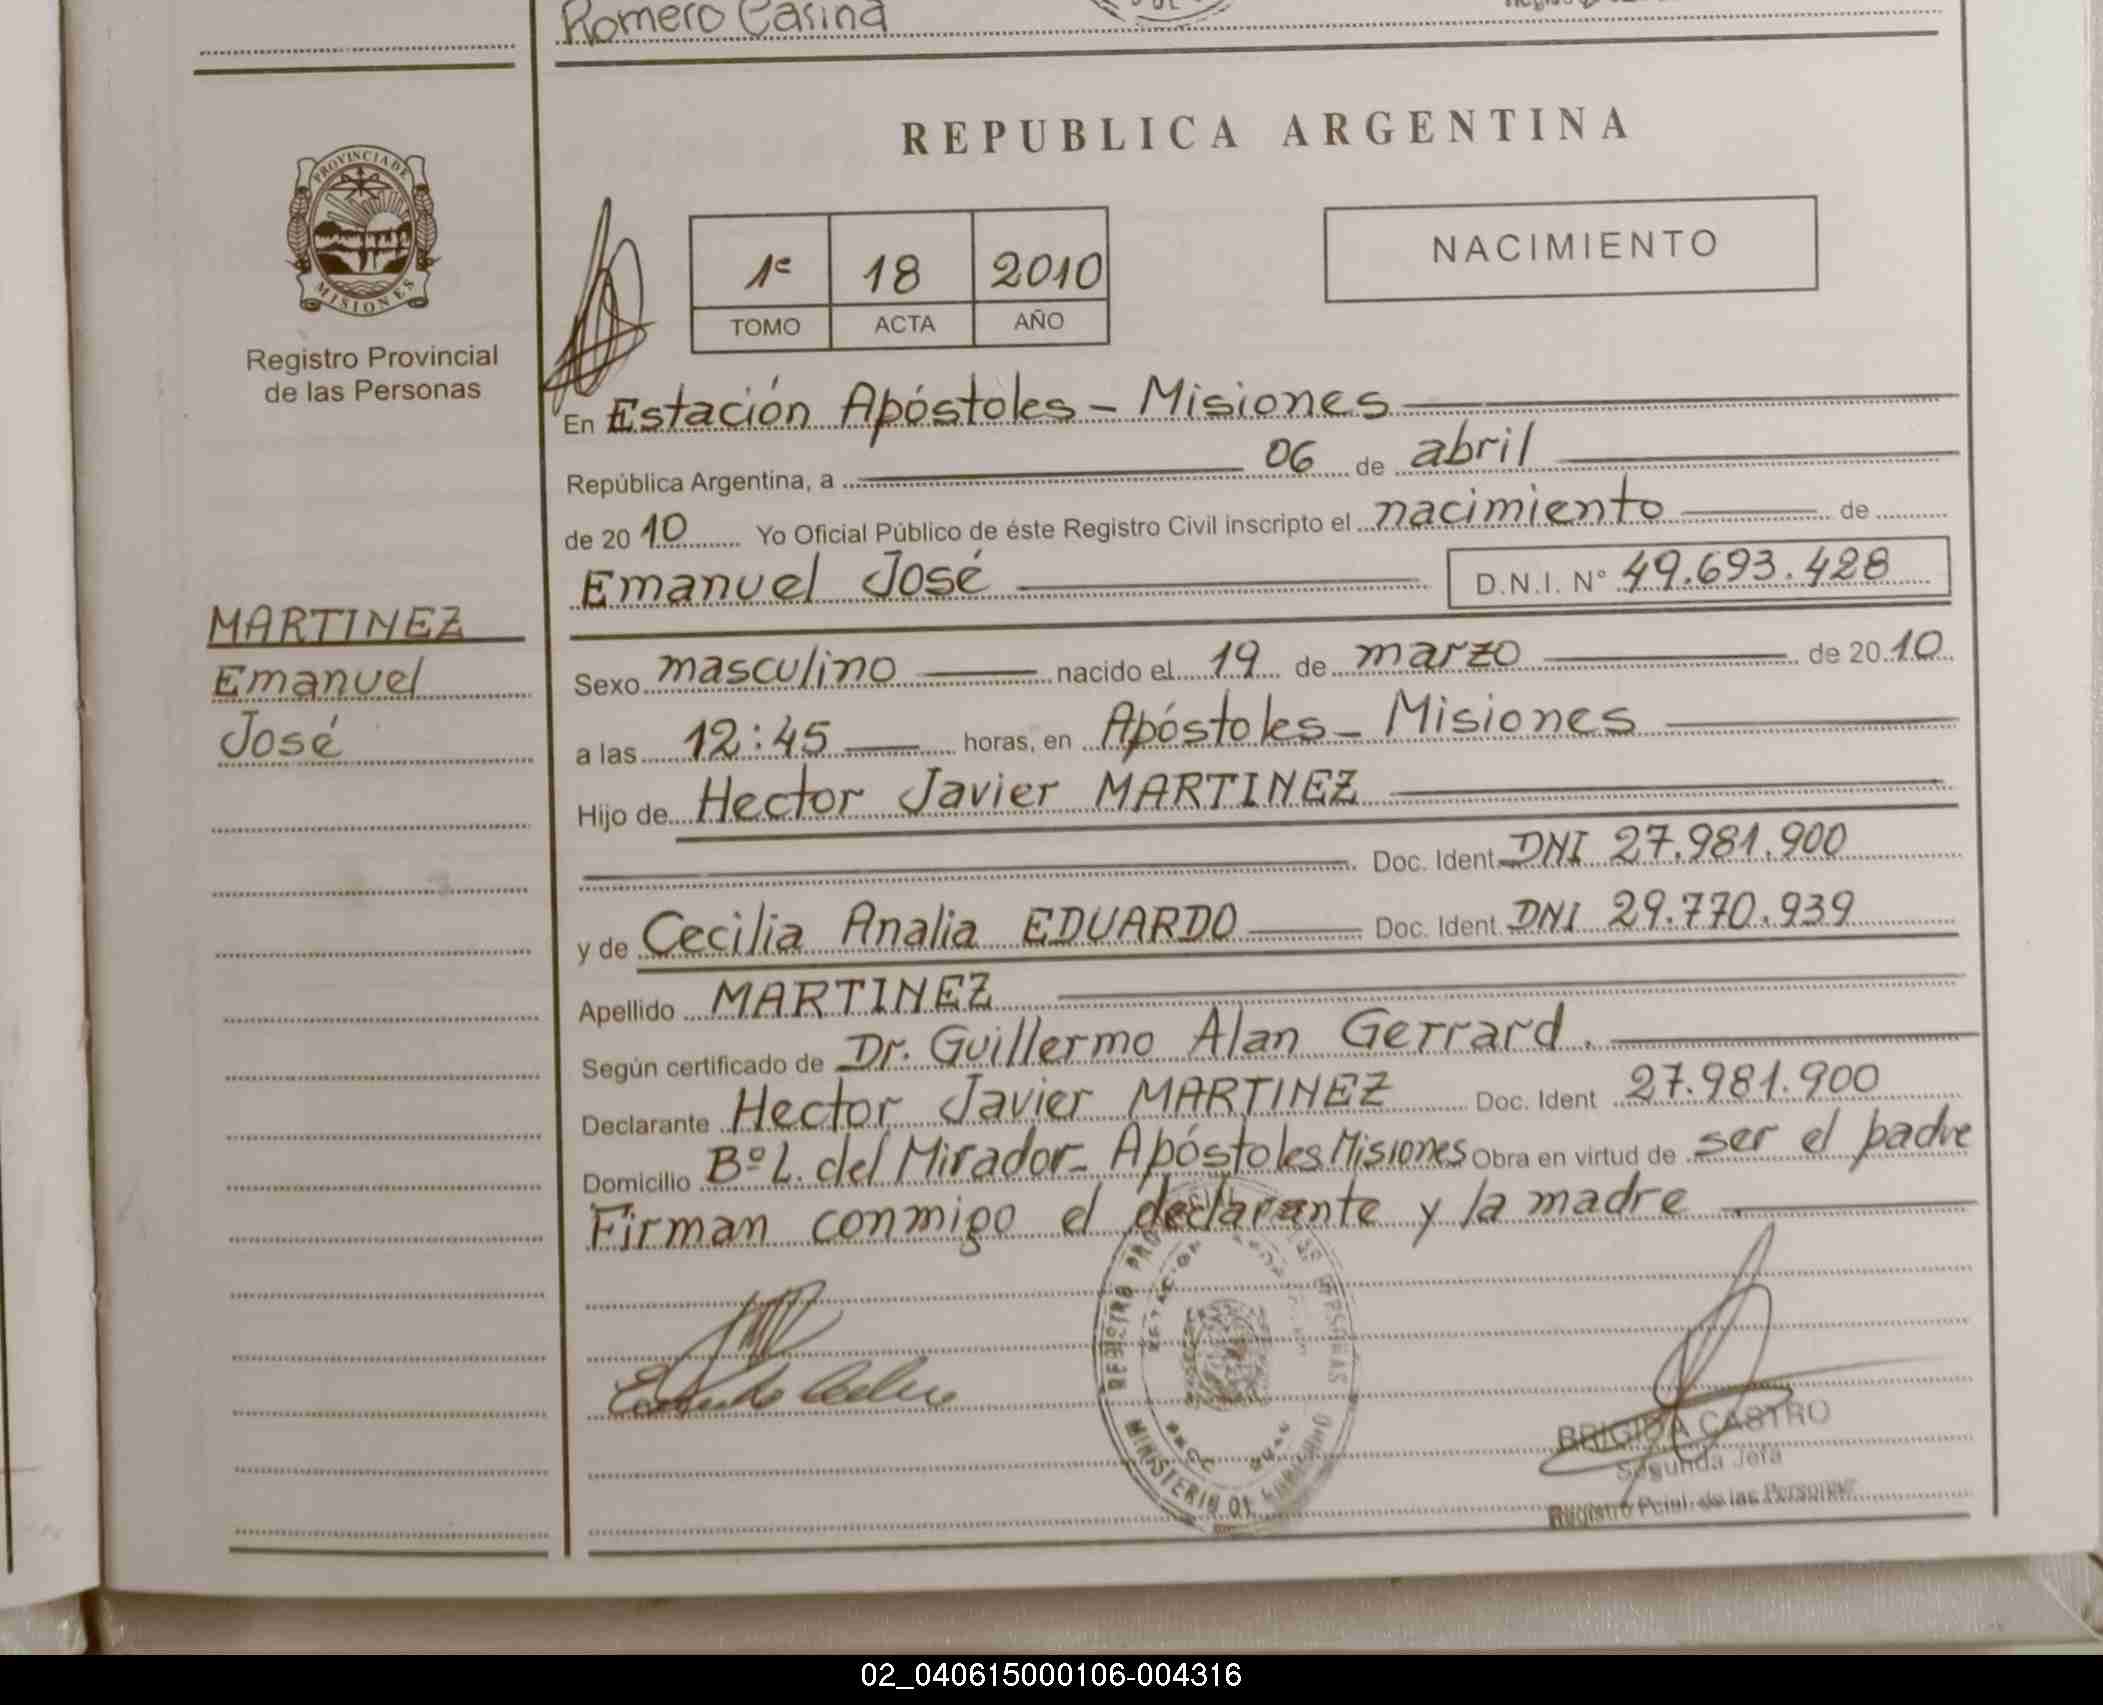 Romero Casina
PROVINCIA DE
MISIONES
Registro Provincial
de las Personas
MARTINEZ
Emanuel
José
REPUBLICA ARGENTINA
1º 18 2010
TOMO ACTA AÑO
NACIMIENTO
En Estación Apóstoles - Misiones
República Argentina, a 06 de abril
de 2010 Yo Oficial Público de éste Registro Civil inscripto el nacimiento de
Emanuel José D.N.I. Nº 49.693.428
Sexo masculino nacido el 19 de marzo de 2010
a las 12:45 horas, en Apóstoles - Misiones
Hijo de Hector Javier MARTINEZ
Doc. Ident. DNI 27.981.900
y de Cecilia Analia EDUARDO Doc. Ident. DNI 29.770.939
Apellido MARTINEZ
Según certificado de Dr. Guillermo Alan Gerrard.
Declarante Hector Javier MARTINEZ Doc. Ident 27.981.900
Domicilio Bº L. del Mirador - Apóstoles Misiones Obra en virtud de ser el padre
Firman conmigo el declarante y la madre
REGISTRO DE LAS PERSONAS
MINISTERIO DE GOBIERNO
BRIGIDA CASTRO
Segunda Jefa
Registro Pcial. de las Personas
02_040615000106-004316